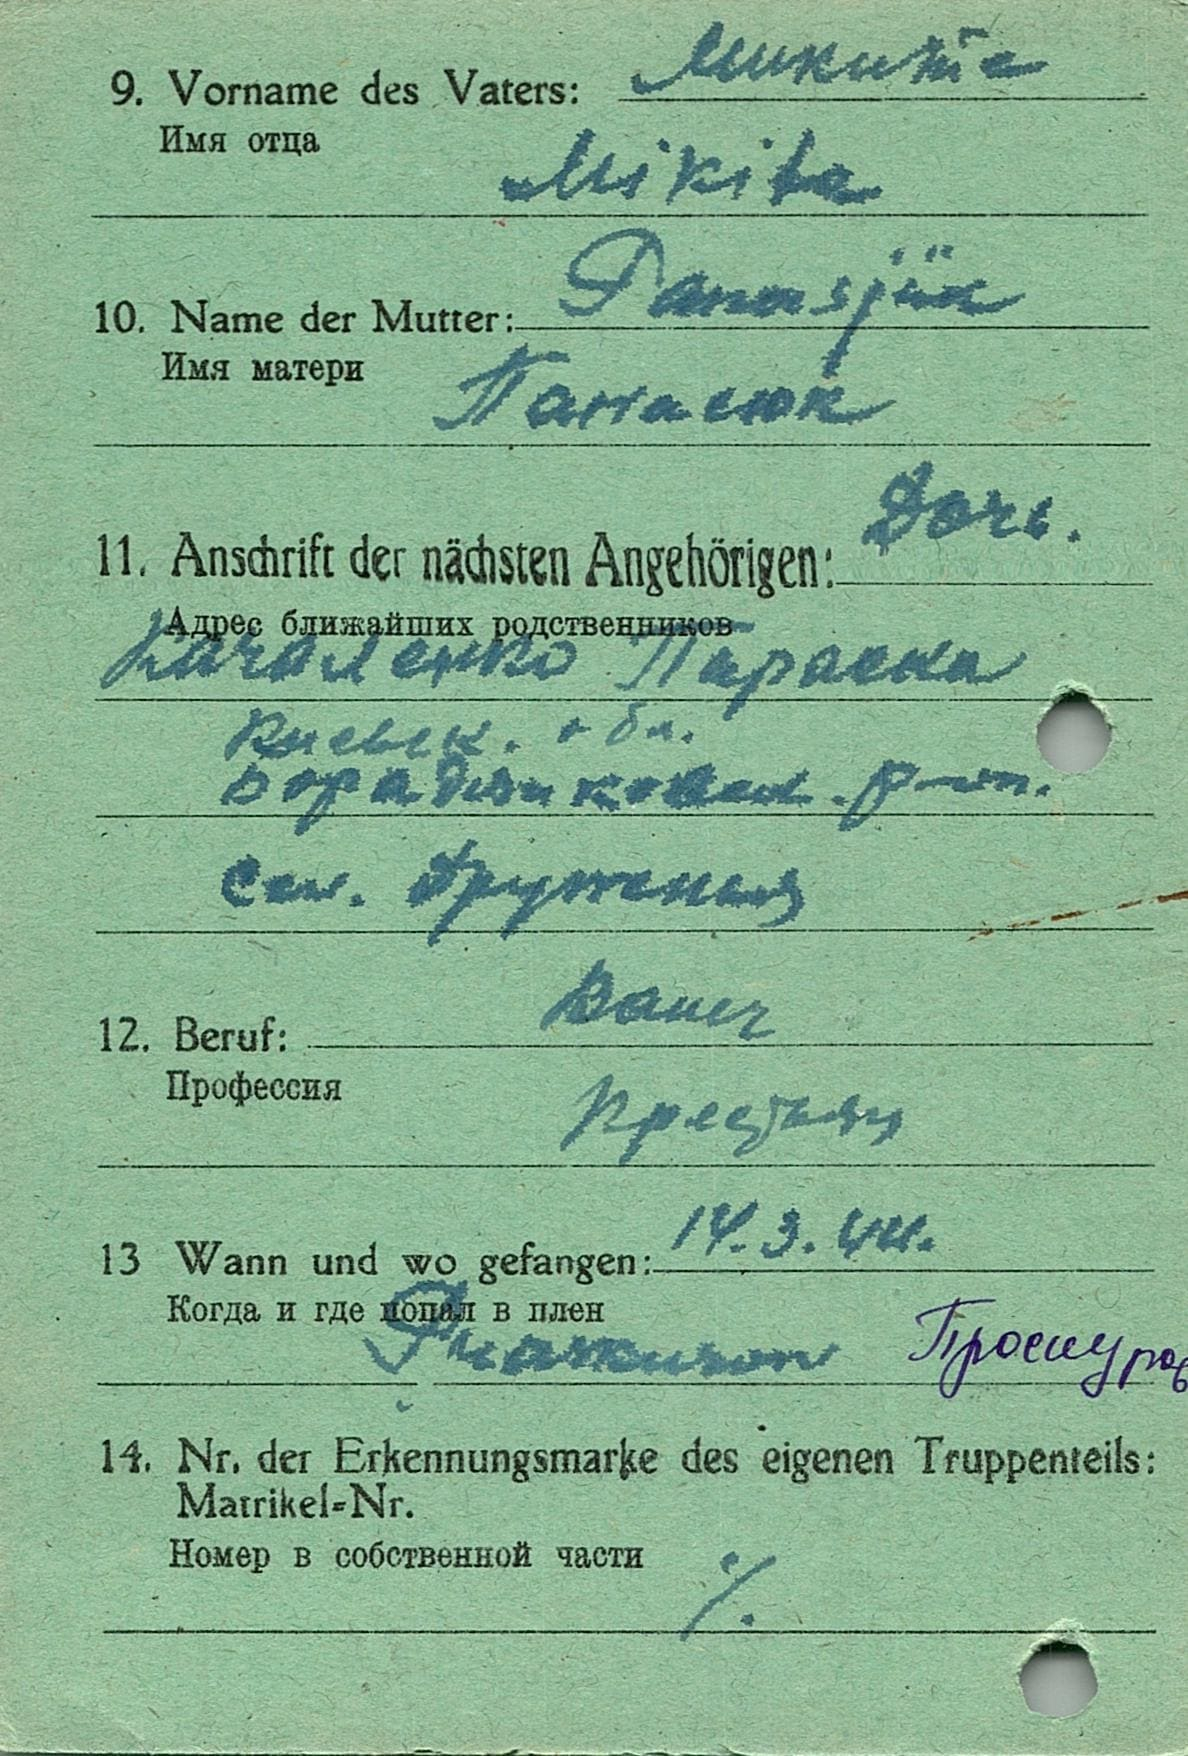 9. Vorname des Vaters: Микита
Имя отца
Mikita
10. Name der Mutter: Panasjük
Имя матери
Панасюк
11. Anschrift der nächsten Angehörigen: Дочь.
Адрес ближайших родственников
Параска
Киевск. обл.
р-он.
сел. Дружня
12. Beruf: Bauer
Профессия
Крестьян
13 Wann und wo gefangen: 14.3.44.
Когда и где попал в плен
Проскуров
14. Nr. der Erkennungsmarke des eigenen Truppenteils:
Matrikel=Nr.
Номер в собственной части
·/.